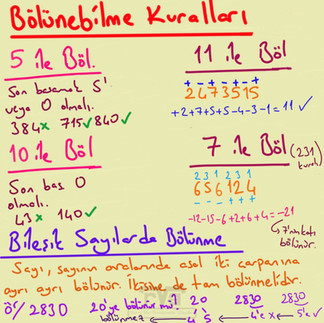 Bölünebilme Kuralları
5 ile Böl.
Son basamak 5'
veya 0 olmalı.
384x 715✓ 840✓
11 ile Böl
+ - + - + - +
2473515
+2+7+5+5-4-3-1=11 ✓
10 ile Böl
Son bas 0
olmalı.
43x 140✓
7 ile Böl (231 kuralı)
2 3 1 2 3 1
656124
- - - + + +
-12-15-6+2+6+4=-21
7'nin katı
bölünür.
Bileşik Sayılarda Bölünme
Sayı, sayının aralarında asal iki çarpanına
ayrı ayrı bölünür. İkisine de tam bölünmelidir.
ör/ 2830 20'ye bölünür mü? 20 2830 2830
bölünmez 4 5 4'e x 5'e ✓